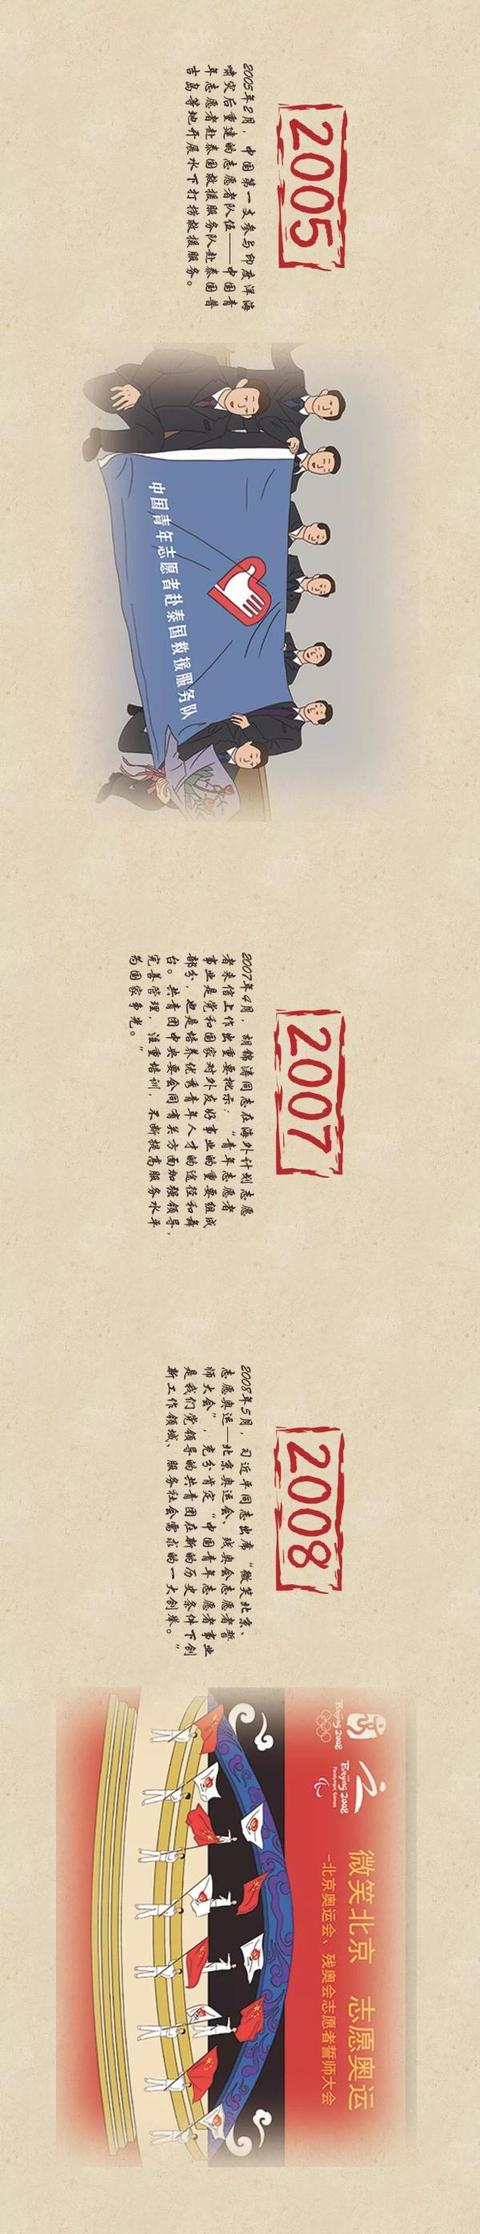 2005
2005年2月，中国第一支参与印度洋海
啸灾后重建的志愿者队伍——中国青
年志愿者赴泰国救援服务队赴泰国普
吉岛等地开展水下打捞救援服务。
中国青年志愿者赴泰国救援服务队
2007
2007年4月，胡锦涛同志在海外计划志愿
者来信上作出重要批示：“青年志愿者
事业是党和国家对外友好事业的重要组成
部分，也是培养优秀青年人才的途径和舞
台。共青团中央要会同有关方面加强领导，
完善管理，注重培训，不断提高服务水平
为国家争光。”
2008
2008年5月，习近平同志出席“微笑北京、
志愿奥运—北京奥运会、残奥会志愿者誓
师大会”，充分肯定“中国青年志愿者事业
是我们党领导的共青团在新的历史条件下创
新工作领域、服务社会需求的一大创举。”
Beijing 2008
Beijing 2008
Paralympic Games
微笑北京 志愿奥运
-北京奥运会、残奥会志愿者誓师大会